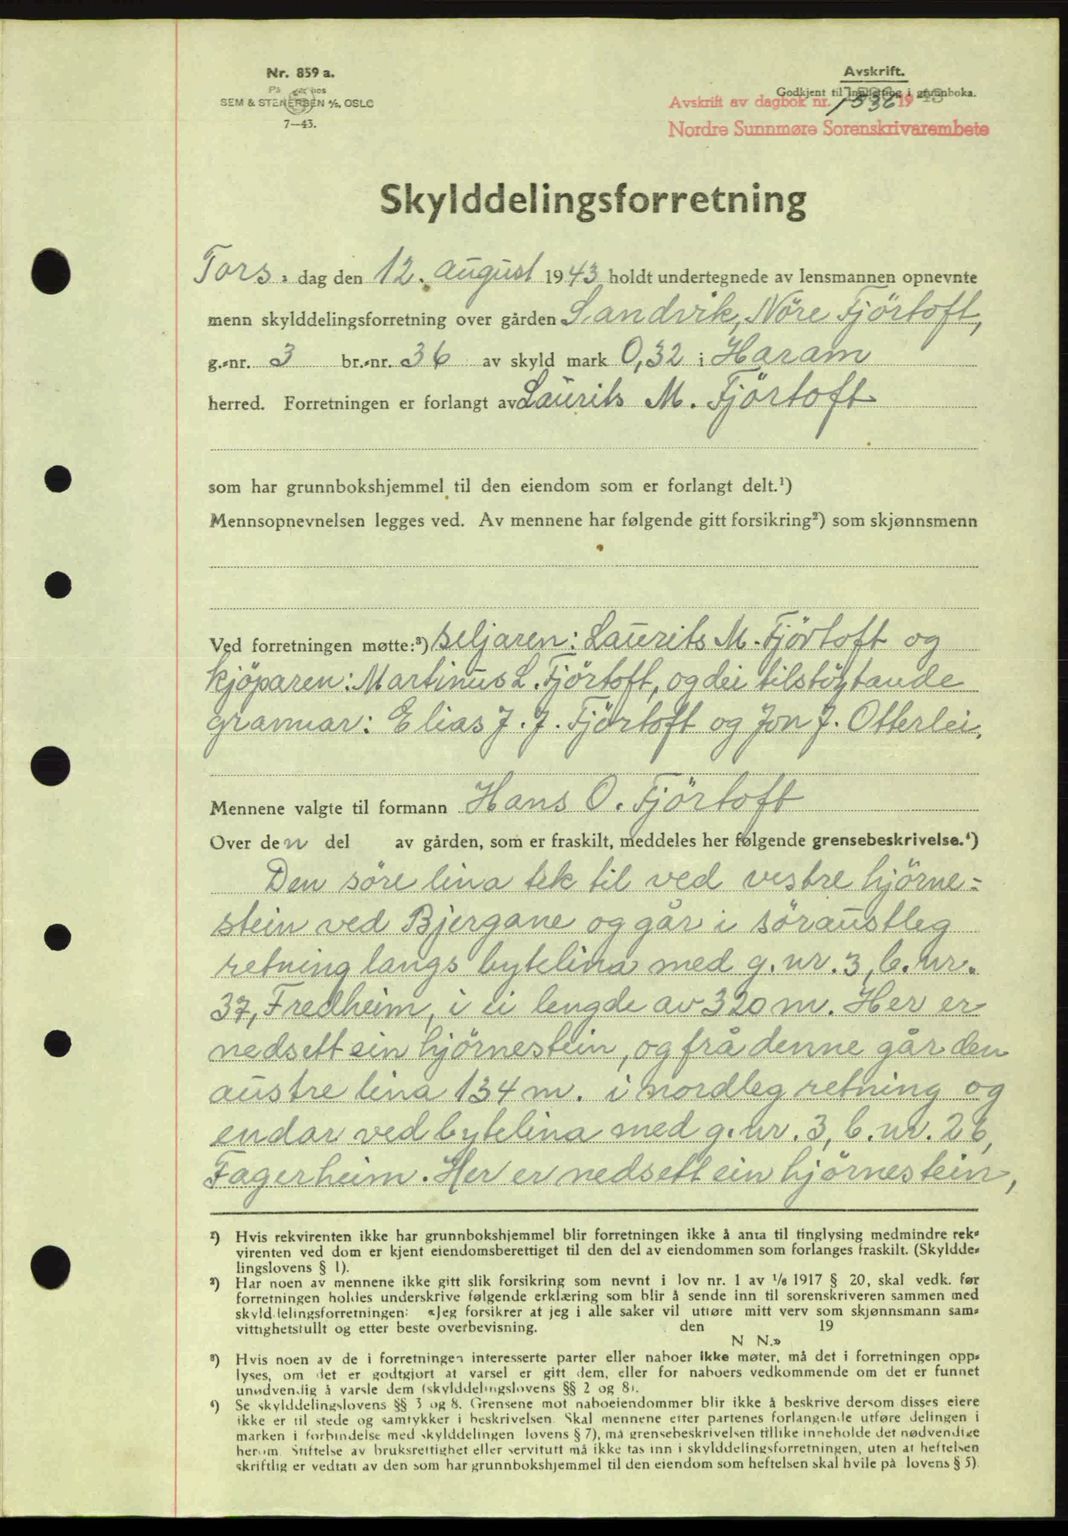 Nr. 859 a.
På lager hos
SEM & STENERSEN A/S, OSLO
7—43.
Avskrift.
Godkjent til innføring i grunnboka.
Avskrift av dagbok nr. 1536 19 43
Nordre Sunnmøre Sorenskrivarembete
Skylddelingsforretning
Tors- dag den 12. august 1943 holdt undertegnede av lensmannen opnevnte
menn skylddelingsforretning over gården Sandvik, Nöre Fjörtoft,
g.-nr. 3 br.-nr. 36 av skyld mark 0,32 i Haram
herred. Forretningen er forlangt av Laurits M. Fjörtoft
som har grunnbokshjemmel til den eiendom som er forlangt delt.¹)
Mennsopnevnelsen legges ved. Av mennene har følgende gitt forsikring²) som skjønnsmenn
Ved forretningen møtte:³) seljaren: Laurits M. Fjörtoft og
kjöparen: Martinus L. Fjörtoft, og dei tilstöytande
grannar: Elias J. J. Fjörtoft og Jon J. Otterlei.
Mennene valgte til formann Hans O. Fjörtoft
Over den del av gården, som er fraskilt, meddeles her følgende grensebeskrivelse.⁴)
Den söre lina tek til ved vestre hjörne-
stein ved Bjergane og går i söraustleg
retning langs bytelina med g. nr. 3, b. nr.
37, Fredheim, i ei lengde av 320 m. Her er
nedsett ein hjörnestein, og frå denne går den
austre lina 134 m. i nordleg retning og
endar ved bytelina med g. nr. 3, b. nr. 26,
Fagerheim. Her er nedsett ein hjörnestein,
¹) Hvis rekvirenten ikke har grunnbokshjemmel blir forretningen ikke å anta til tinglysing medmindre rek-
virenten ved dom er kjent eiendomsberettiget til den del av eiendommen som forlanges fraskilt. (Skyldde-
lingslovens § 1).
²) Har noen av mennene ikke gitt slik forsikring som nevnt i lov nr. 1 av 1/6 1917 § 20, skal vedk. før
forretningen holdes underskrive følgende erklæring som blir å sende inn til sorenskriveren sammen med
skylddelingsforretningen: «Jeg forsikrer at jeg i alle saker vil utføre mitt verv som skjønnsmann sam-
vittighetsfullt og etter beste overbevisning. den 19
N N.»
³) Hvis noen av de i forretningen interesserte parter eller naboer ikke møter, må det i forretningen opp-
lyses, om det er godtgjort at varsel er gitt dem, eller for naboers vedkommende om det er funnet
unødvendig å varsle dem (skylddelingslovens §§ 2 og 8).
⁴) Se skylddelingslovens §§ 3 og 8. Grensene mot naboeiendommer blir ikke å beskrive dersom disses eiere
ikke er til stede og samtykker i beskrivelsen. Skal mennene etter partenes forlangende utføre delingen i
marken i forbindelse med skylddelingen (lovens § 7), må grensebeskrivelsen tillike inneholde det nødvendige
herom. Stiftelse av bruksrettighet eller servitutt må ikke tas inn i skylddelingsforretningen, uten at heftelsen
skriftlig er vedtatt av den som har grunnbokshjemmel til den eiendom som heftelsen skal hvile på (lovens § 5).